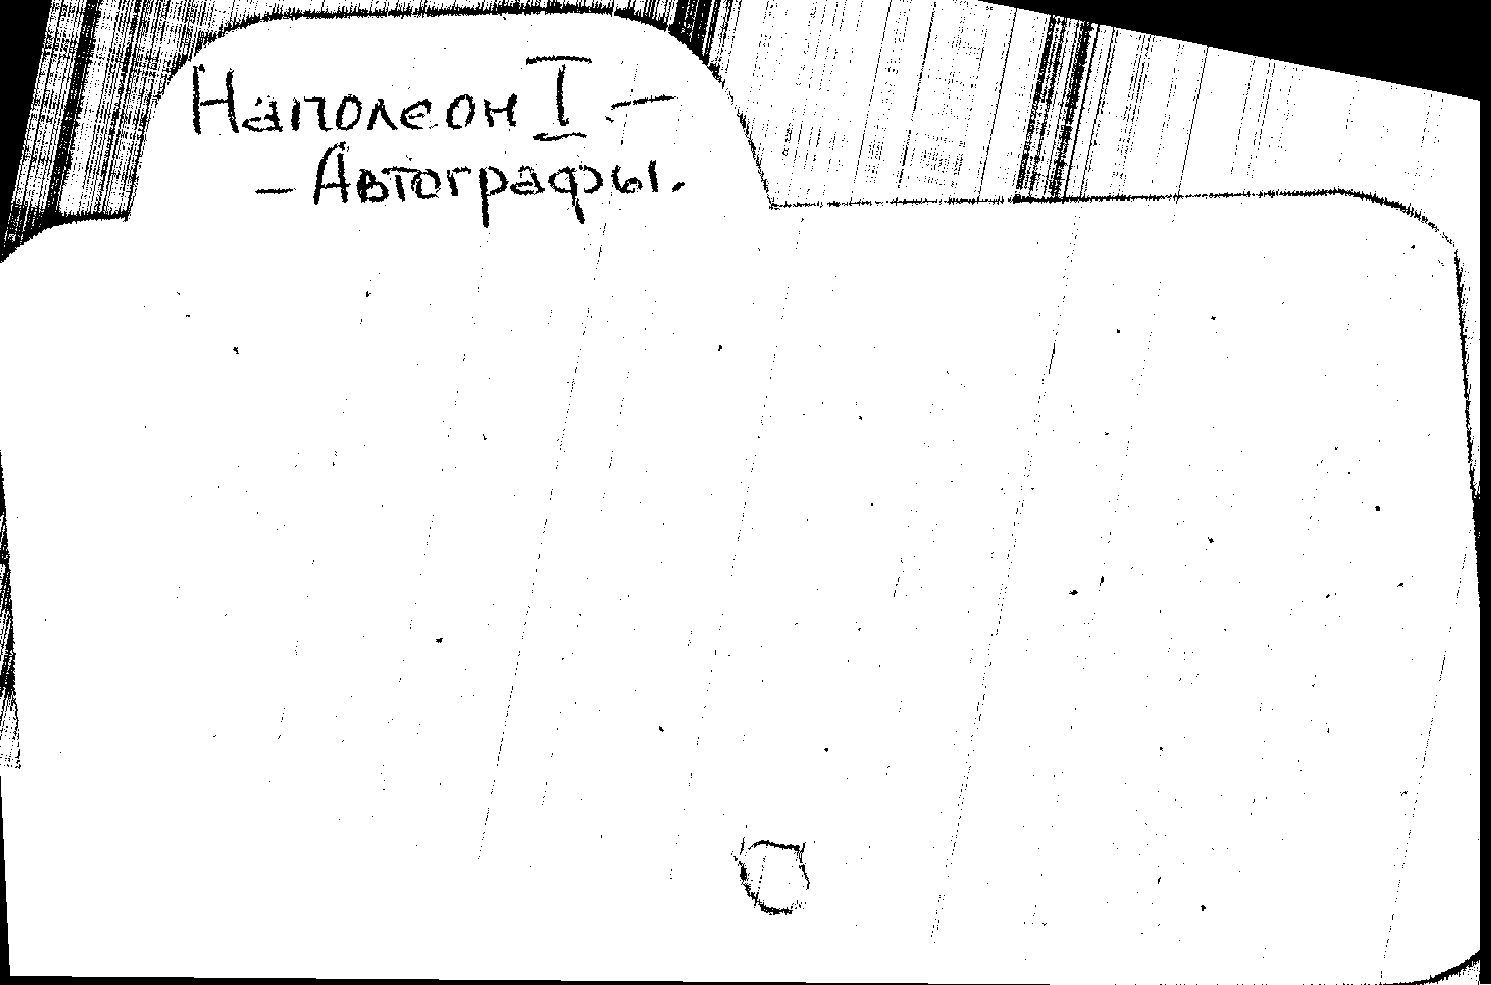 Наполеон I —
— Автографы.